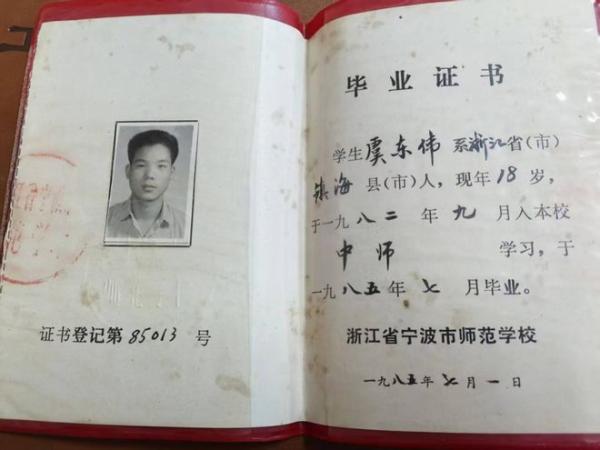 证书登记第 85013 号
毕业证书
学生虞东伟系浙江省(市)
镇海县(市)人，现年18岁，
于一九八二年九月入本校
中师学习，于
一九八五年七月毕业。
浙江省宁波市师范学校
一九八五年七月一日